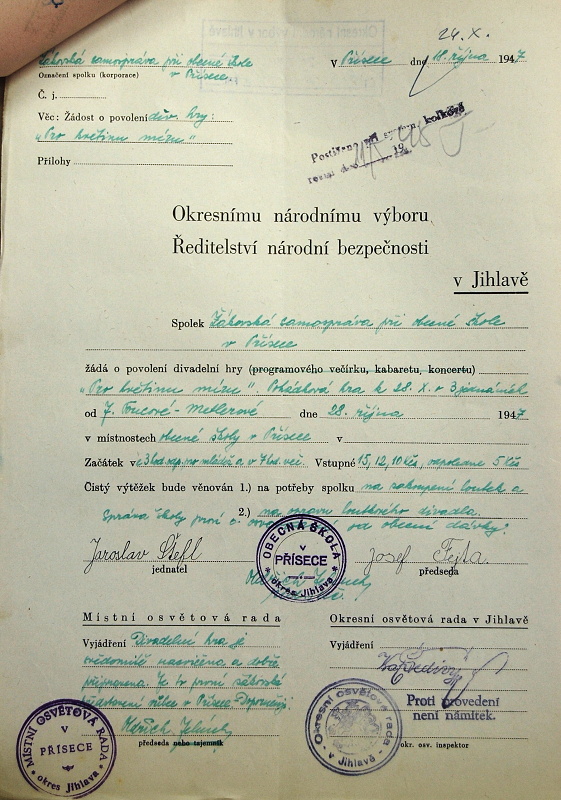 24. X.
Žákovská samospráva při obecné škole
v Přísece.
Označení spolku (korporace)
V Přísece dne 18. října 1947
Č. j.
Věc: Žádost o povolení div. hry:
„Pro květinu mízu"
Přílohy
Okresní národní výbor v Jihlavě
kolkové
19
Okresnímu národnímu výboru
Ředitelství národní bezpečnosti
v Jihlavě
Spolek Žákovská samospráva při obecné škole
v Přísece
žádá o povolení divadelní hry (programového večírku, kabaretu, koncertu)
„Pro květinu mízu". Pohádková hra k 28. X. v 3 jednáních
od J. dne 28. října 1947
v místnostech obecné školy v Přísece v
Začátek v 3 hod. odp. pro mládež a v 7 hod. več. Vstupné 15, 12, 10 Kčs, odpoledne 5 Kčs
Čistý výtěžek bude věnován 1.) na potřeby spolku na zakoupení loutek a
2.) na opravu loutkového divadla.
Správa školy prosí o od obecní dávky.
Jaroslav Štefl
jednatel
OBECNÁ ŠKOLA
V
PŘÍSECE
okres Jihlava
Josef Fejta.
předseda
Místní osvětová rada
Vyjádření Divadelní hra je
svědomitě nacvičena a dobře
připravena. Je to první žákovské
představení v Přísece. Doporučuji.
předseda nebo tajemník
MÍSTNÍ OSVĚTOVÁ RADA
V
PŘÍSECE
okres Jihlava
Okresní osvětová rada v Jihlavě
Vyjádření
Proti provedení
není námitek.
Okresní osvětová rada
v Jihlavě
okr. osv. inspektor